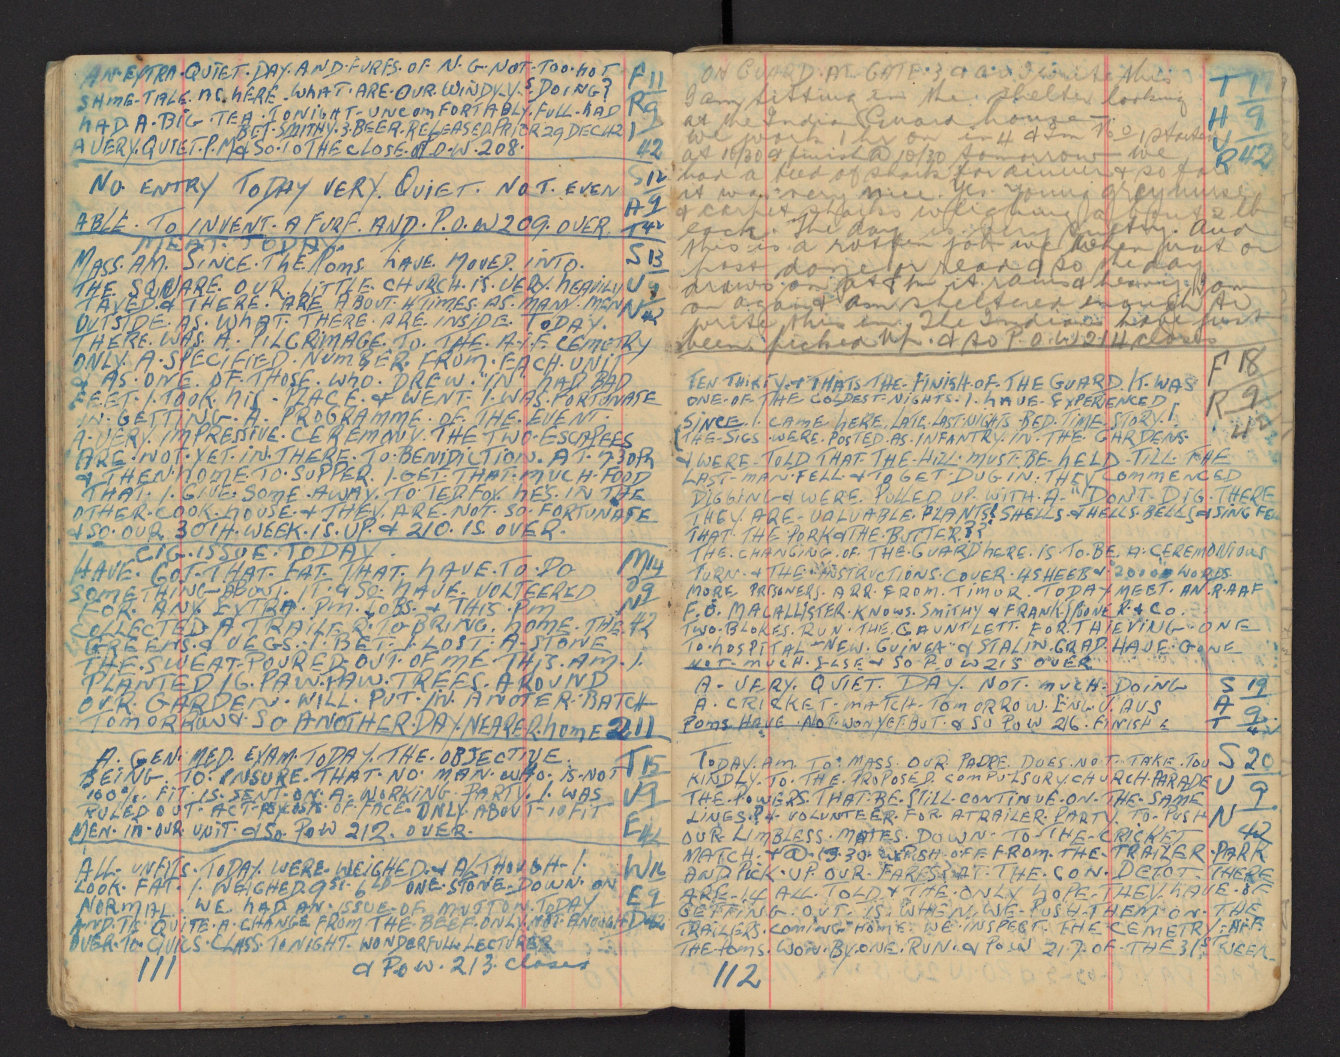 AN·EXTRA·QUIET·DAY·AND·FURFS·OF·N·G·NOT·TOO·HOT F 11
SAME·TALE AS HERE·WHAT·ARE·OUR·WINDY·V'S·DOING? R 9
HAD·A·BIG·TEA·TONIGHT·UNCOMFORTABLY·FULL·HAD I
BET·SMITHY·3·BEER·RELEASED·PRIOR 29 DEC 42 42
A VERY·QUIET·P.M & SO·TO THE CLOSE OF P.O.W·208·
NO ENTRY TODAY VERY QUIET. NOT EVEN S 12
A 9
ABLE. TO INVENT. A FURF. AND. P.O.W 209 OVER T 42
MEAT. TODAY.
MASS. AM. SINCE. THE POMS. HAVE MOVED INTO. S 13
THE SQUARE OUR LITTLE CHURCH IS VERY HEAVILY U 9
TAXED & THERE ARE ABOUT 4 TIMES AS MANY MEN N 42
OUTSIDE AS WHAT THERE ARE INSIDE TODAY.
THERE WAS A PILGRIMAGE TO THE A.I.F CEMETRY
ONLY A SPECIFIED NUMBER FROM EACH UNIT
& AS ONE OF THOSE WHO DREW "IN" HAD BAD
FEET I TOOK HIS PLACE & WENT I WAS FORTUNATE
IN GETTING A PROGRAMME OF THE EVENT
A VERY IMPRESSIVE CEREMONY THE TWO ESCAPEES
ARE NOT YET IN THERE TO BENIDICTION AT 7 30 PM
& THEN HOME TO SUPPER I GET THAT MUCH FOOD
THAT I GIVE SOME AWAY TO TED FOX HES IN THE
OTHER COOK HOUSE & THEY ARE NOT SO FORTUNATE
& SO OUR 30TH WEEK IS UP & 210 IS OVER.
CIG. ISSUE TODAY
HAVE GOT THAT FAT THAT HAVE TO DO M 14
SOMETHING ABOUT IT & SO HAVE VOLTEERED O 9
FOR ANY EXTRA PM JOBS & THIS PM N
COLLECTED A TRAILER TO BRING HOME THE 42
GREENS & VEGS. I BET I LOST A STONE
THE SWEAT POURED OUT OF ME THIS AM I
PLANTED 16 PAW PAW TREES AROUND
OUR GARDEN WILL PUT IN ANOTER BATCH
TOMORROW & SO ANOTHER DAY NEARER HOME 211
A GEN MED EXAM TODAY THE OBJECTIVE T 15
BEING TO INSURE THAT NO MAN WHO IS NOT
100% FIT IS SENT ON A WORKING PARTY I WAS U 9
RULED OUT ACT OF FACE ONLY ABOUT 10 FIT
MEN IN OUR UNIT & SO POW 212 OVER. E 42
ALL UNFITS TODAY WERE WEIGHED & ALTHOUGH I W 16
LOOK FAT I WEIGHED 9ST 6LB ONE STONE DOWN ON E 9
NORMAL WE HAD AN ISSUE OF MUTTON TODAY
AND TIS QUITE A CHANGE FROM THE BEEF ONLY NOT ENOUGH D 42
OVER TO GUNS CLASS TONIGHT WONDERFULL LECTURER
111 & P.O.W. 213 closes
ON GUARD AT GATE 3 & as I write this T 17
I am sitting in the shelter looking H 9
at the Indian Guard house
we work 1 hr on in 4 & Im No 1 started U
at 10/30 & finish @ 10/30 tomorrow we R 42
had a feed of shark for dinner & so far
it was very nice. Yes. Young grey nurse
& carpet sharks which
each. The day is very sultry. and
this is a rotten job we when put on
post doze or read & so the day
draws on at 4 Pm it rains & heavy. I am
on again & am sheltered enough to
write this in. The Indians have just
been picked up. & so P.O.W 214 closes
TEN THIRTY & THATS THE FINISH OF THE GUARD IT WAS F 18
ONE OF THE COLDEST NIGHTS I HAVE EXPERIENCED R 9
SINCE I CAME HERE LATE LAST NIGHTS BED TIME STORY! I 42
THE SIGS WERE POSTED AS INFANTRY IN THE GARDENS
& WERE TOLD THAT THE HILL MUST BE HELD TILL THE
LAST MAN FELL & TO GET DUG IN THEY COMMENCED
DIGGING & WERE PULLED UP WITH A "DONT DIG THERE
THEY ARE VALUABLE PLANTS" SHELLS & HELLS BELLS & SING
THAT THE PORK & THE BUTTER??
THE CHANGING OF THE GUARD HERE IS TO BE A CEREMONIOUS
TURN & THE INSTRUCTIONS COVER 4 SHEETS & 20000 WORDS
MORE PRISONERS ARR FROM TIMOR TODAY MEET AN RAAF
F.O. MACALLISTER KNOWS SMITHY & FRANK SPOONER & CO.
TWO BLOKES RUN THE GAUNTLETT FOR THIEVING ONE
TO HOSPITAL NEW GUINEA & STALINGRAD HAVE GONE
NOT MUCH ELSE & SO P O W 215 OVER
A VERY QUIET DAY NOT MUCH DOING S 19
A CRICKET MATCH TOMORROW ENG V AUS A 9
POMS HAVE NOT WON YET BUT & SO POW 216 FINISHE T 42
TODAY AM TO MASS OUR PADRE DOES NOT TAKE TOO S 20
KINDLY TO THE PROPOSED COMPULSORY CHURCH PARADE U
THE POWERS THAT BE STILL CONTINUE ON THE SAME 9
LINES PM VOLUNTEER FOR A TRAILER PARTY TO PUSH N
OUR LIMBLESS MATES DOWN TO THE CRICKET 42
MATCH & @ 13.30 WE PUSH OFF FROM THE TRAILER PARK
AND PICK UP OUR FARES AT THE CON DEPOT THERE
ARE 14 ALL TOLD & THE ONLY HOPE THEY HAVE OF
GETTING OUT IS WHEN WE PUSH THEM ON THE
TRAILERS COMING HOME WE INSPECT THE CEMETRY AFF
THE POMS WON BY ONE RUN & POW 217 OF THE 31ST WEEK
112